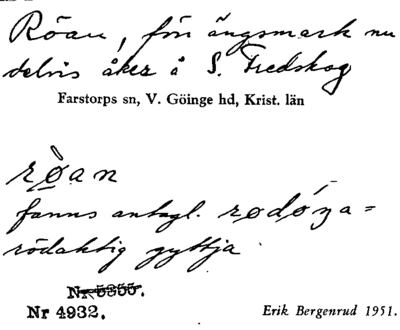 Röan, förr ängsmark nu
delvis åker å S. Fredskog
Farstorps sn, V. Göinge hd, Krist. län
rø̀an
fanns antagl. rødó
rödaktig gyttja
Nr 5355.
Nr 4932.
Erik Bergenrud 1951.